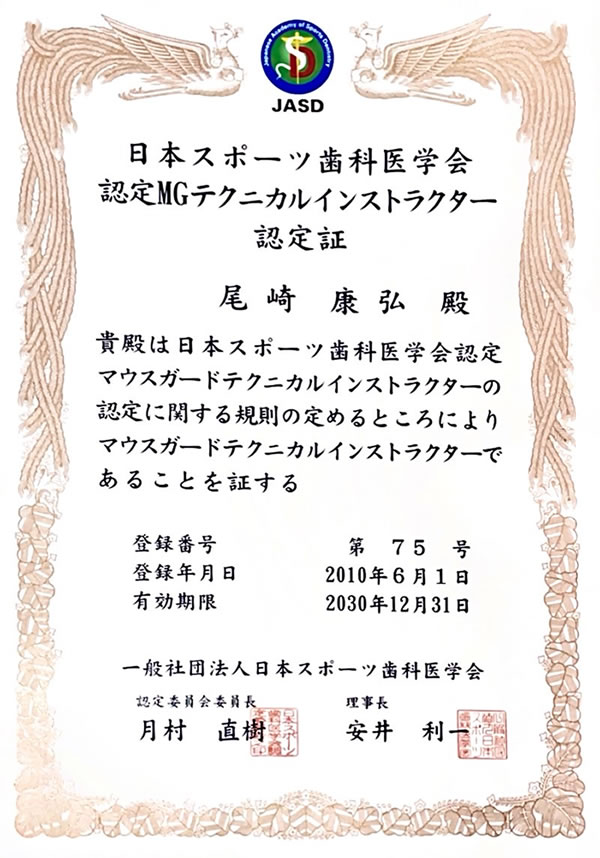 Japanese Academy of Sports Dentistry
JASD
日本スポーツ歯科医学会
認定MGテクニカルインストラクター
認定証
尾崎 康弘 殿
貴殿は日本スポーツ歯科医学会認定
マウスガードテクニカルインストラクターの
認定に関する規則の定めるところにより
マウスガードテクニカルインストラクターで
あることを証する
登録番号 第 75 号
登録年月日 2010年6月1日
有効期限 2030年12月31日
一般社団法人日本スポーツ歯科医学会
認定委員会委員長 理事長
月村 直樹 安井 利一